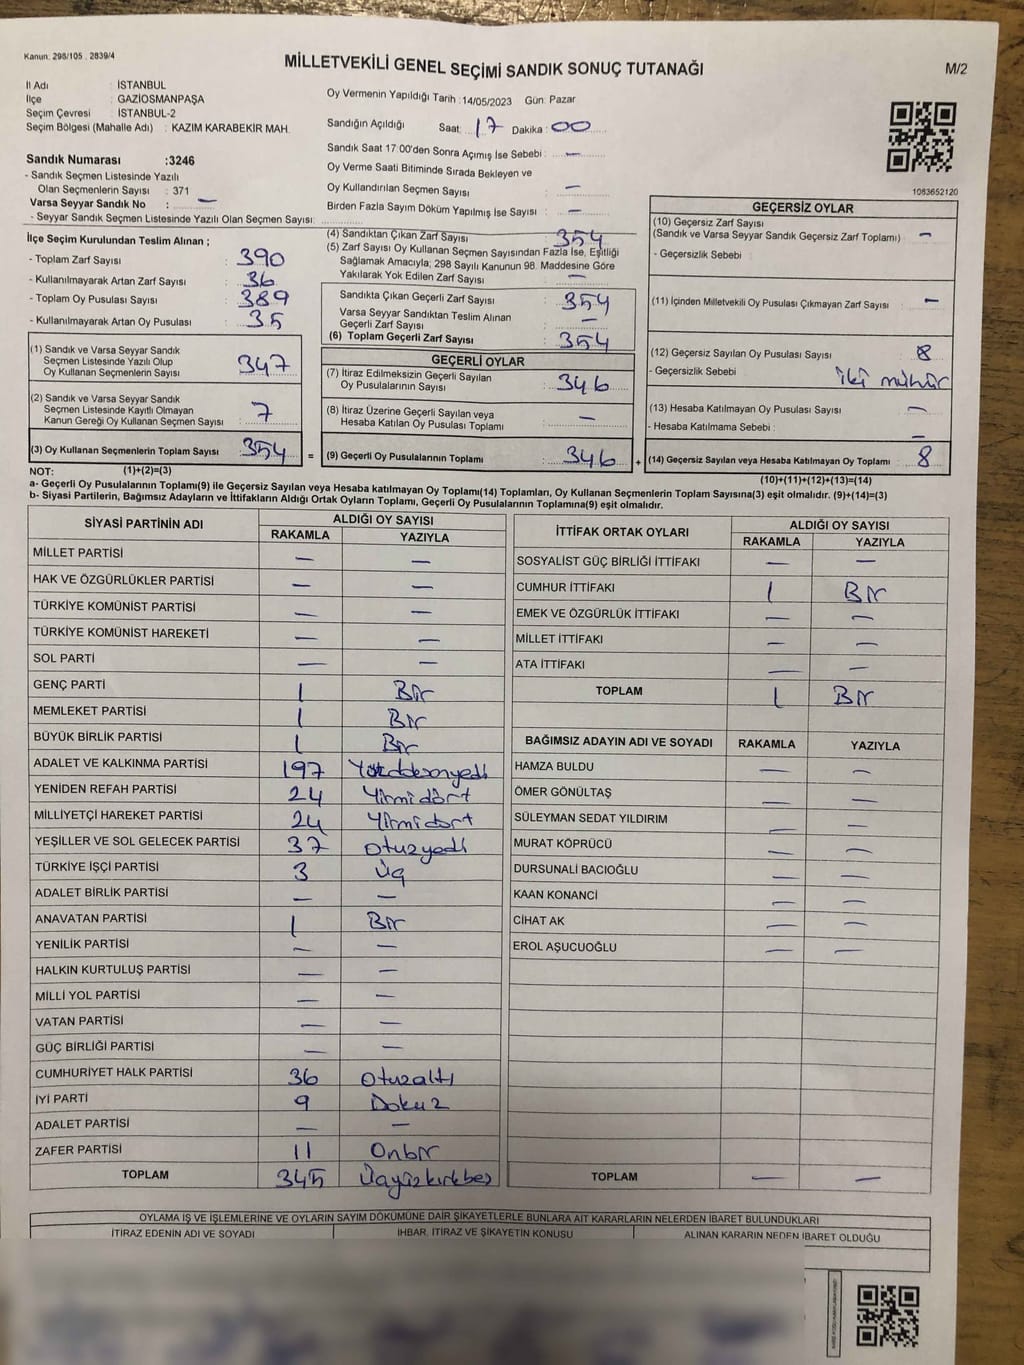 Kanun: 298/105 , 2839/4
MİLLETVEKİLİ GENEL SEÇİMİ SANDIK SONUÇ TUTANAĞI
M/2
İl Adı : İSTANBUL
İlçe : GAZİOSMANPAŞA
Seçim Çevresi : İSTANBUL-2
Seçim Bölgesi (Mahalle Adı) : KAZIM KARABEKİR MAH.
Oy Vermenin Yapıldığı Tarih : 14/05/2023 Gün: Pazar
Sandığın Açıldığı Saat: 17 Dakika: 00
Sandık Saat 17:00'den Sonra Açımış İse Sebebi : —
Oy Verme Saati Bitiminde Sırada Bekleyen ve
Oy Kullandırılan Seçmen Sayısı : —
Birden Fazla Sayım Döküm Yapılmış İse Sayısı : —
Sandık Numarası :3246
- Sandık Seçmen Listesinde Yazılı
Olan Seçmenlerin Sayısı : 371
Varsa Seyyar Sandık No : —
- Seyyar Sandık Seçmen Listesinde Yazılı Olan Seçmen Sayısı:
1083652120
İlçe Seçim Kurulundan Teslim Alınan ;
- Toplam Zarf Sayısı : 390
- Kullanılmayarak Artan Zarf Sayısı : 36
- Toplam Oy Pusulası Sayısı : 389
- Kullanılmayarak Artan Oy Pusulası : 35
(1) Sandık ve Varsa Seyyar Sandık
Seçmen Listesinde Yazılı Olup
Oy Kullanan Seçmenlerin Sayısı : 347
(2) Sandık ve Varsa Seyyar Sandık
Seçmen Listesinde Kayıtlı Olmayan
Kanun Gereği Oy Kullanan Seçmen Sayısı : 7
(3) Oy Kullanan Seçmenlerin Toplam Sayısı : 354 =
(4) Sandıktan Çıkan Zarf Sayısı : 354
(5) Zarf Sayısı Oy Kullanan Seçmen Sayısından Fazla İse, Eşitliği
Sağlamak Amacıyla; 298 Sayılı Kanunun 98. Maddesine Göre
Yakılarak Yok Edilen Zarf Sayısı : —
Sandıkta Çıkan Geçerli Zarf Sayısı : 354
Varsa Seyyar Sandıktan Teslim Alınan
Geçerli Zarf Sayısı : —
(6) Toplam Geçerli Zarf Sayısı : 354
GEÇERLİ OYLAR
(7) İtiraz Edilmeksizin Geçerli Sayılan
Oy Pusulalarının Sayısı : 346
(8) İtiraz Üzerine Geçerli Sayılan veya
Hesaba Katılan Oy Pusulası Toplamı : —
(9) Geçerli Oy Pusulalarının Toplamı : 346 +
GEÇERSİZ OYLAR
(10) Geçersiz Zarf Sayısı
(Sandık ve Varsa Seyyar Sandık Geçersiz Zarf Toplamı) : —
- Geçersizlik Sebebi :
(11) İçinden Milletvekili Oy Pusulası Çıkmayan Zarf Sayısı : —
(12) Geçersiz Sayılan Oy Pusulası Sayısı : 8
- Geçersizlik Sebebi : iki mühür
(13) Hesaba Katılmayan Oy Pusulası Sayısı : —
- Hesaba Katılmama Sebebi : —
(14) Geçersiz Sayılan veya Hesaba Katılmayan Oy Toplamı : 8
NOT: (1)+(2)=(3)
(10)+(11)+(12)+(13)=(14)
a- Geçerli Oy Pusulalarının Toplamı(9) ile Geçersiz Sayılan veya Hesaba katılmayan Oy Toplamı(14) Toplamları, Oy Kullanan Seçmenlerin Toplam Sayısına(3) eşit olmalıdır. (9)+(14)=(3)
b- Siyasi Partilerin, Bağımsız Adayların ve İttifakların Aldığı Ortak Oyların Toplamı, Geçerli Oy Pusulalarının Toplamına(9) eşit olmalıdır.
SİYASİ PARTİNİN ADI ALDIĞI OY SAYISI
RAKAMLA YAZIYLA
MİLLET PARTİSİ — —
HAK VE ÖZGÜRLÜKLER PARTİSİ — —
TÜRKİYE KOMÜNİST PARTİSİ — —
TÜRKİYE KOMÜNİST HAREKETİ — —
SOL PARTİ — —
GENÇ PARTİ 1 Bir
MEMLEKET PARTİSİ 1 Bir
BÜYÜK BİRLİK PARTİSİ 1 Bir
ADALET VE KALKINMA PARTİSİ 197
YENİDEN REFAH PARTİSİ 24 Yirmi dört
MİLLİYETÇİ HAREKET PARTİSİ 24 Yirmi dört
YEŞİLLER VE SOL GELECEK PARTİSİ 37 otuzyedi
TÜRKİYE İŞÇİ PARTİSİ 3 Üç
ADALET BİRLİK PARTİSİ — —
ANAVATAN PARTİSİ 1 Bir
YENİLİK PARTİSİ — —
HALKIN KURTULUŞ PARTİSİ — —
MİLLİ YOL PARTİSİ — —
VATAN PARTİSİ — —
GÜÇ BİRLİĞİ PARTİSİ — —
CUMHURİYET HALK PARTİSİ 36 otuzaltı
İYİ PARTİ 9 Dokuz
ADALET PARTİSİ — —
ZAFER PARTİSİ 11 Onbir
TOPLAM 345 Üçyüzkırkbeş
İTTİFAK ORTAK OYLARI ALDIĞI OY SAYISI
RAKAMLA YAZIYLA
SOSYALİST GÜÇ BİRLİĞİ İTTİFAKI — —
CUMHUR İTTİFAKI 1 Bir
EMEK VE ÖZGÜRLÜK İTTİFAKI — —
MİLLET İTTİFAKI — —
ATA İTTİFAKI — —
TOPLAM 1 Bir
BAĞIMSIZ ADAYIN ADI VE SOYADI RAKAMLA YAZIYLA
HAMZA BULDU — —
ÖMER GÖNÜLTAŞ — —
SÜLEYMAN SEDAT YILDIRIM — —
MURAT KÖPRÜCÜ — —
DURSUNALİ BACIOĞLU — —
KAAN KONANCİ — —
CİHAT AK — —
EROL AŞUCUOĞLU — —
TOPLAM — —
OYLAMA İŞ VE İŞLEMLERİNE VE OYLARIN SAYIM DÖKÜMÜNE DAİR ŞİKAYETLERLE BUNLARA AİT KARARLARIN NELERDEN İBARET BULUNDUKLARI
İTİRAZ EDENİN ADI VE SOYADI İHBAR, İTİRAZ VE ŞİKAYETİN KONUSU ALINAN KARARIN NEDEN İBARET OLDUĞU